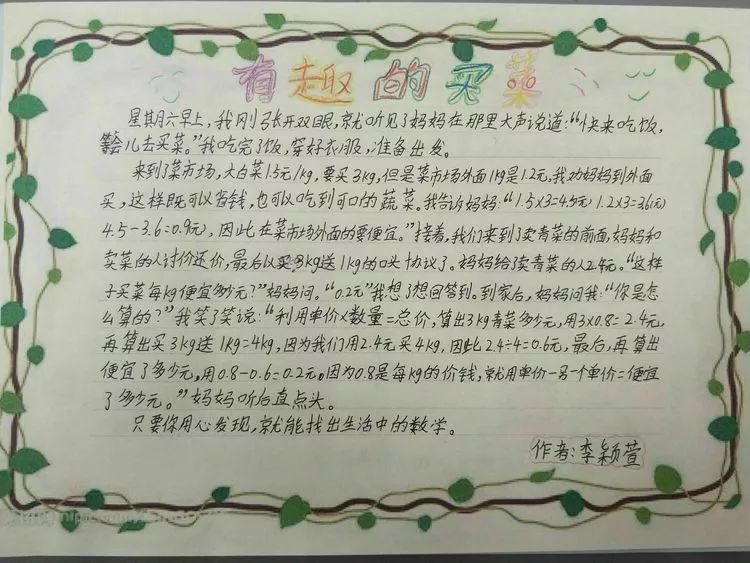 有趣的买菜
星期六早上,我刚张开双眼,就听见了妈妈在那里大声说道:“快来吃饭,
等会儿去买菜。”我吃完了饭,穿好衣服,准备出发。
来到了菜市场,大白菜1.5元/kg,要买3kg,但是菜市场外面1kg是1.2元,我劝妈妈到外面
买,这样既可以省钱,也可以吃到可口的蔬菜。我告诉妈妈:“1.5×3=4.5(元) 1.2×3=3.6(元)
4.5-3.6=0.9(元),因此在菜市场外面的要便宜。”接着,我们来到了卖青菜的前面,妈妈和
卖菜的人讨价还价,最后以买3kg送1kg的口头协议了。妈妈给了卖青菜的人2.4元。“这样
子买菜每kg便宜多少元?”妈妈问。“0.2元”我想了想回答到。到家后,妈妈问我:“你是怎
么算的?”我笑了笑说:“利用单价×数量=总价,算出3kg青菜多少元,用3×0.8=2.4元,
再算出买3kg送1kg=4kg,因为我们用2.4元买4kg,因此2.4÷4=0.6元,最后,再算出
便宜了多少元,用0.8-0.6=0.2元。因为0.8是每kg的价钱,就用单价-另个单价=便宜
了多少元。”妈妈听后直点头。
只要你用心发现,就能找出生活中的数学。
作者:李颖萱